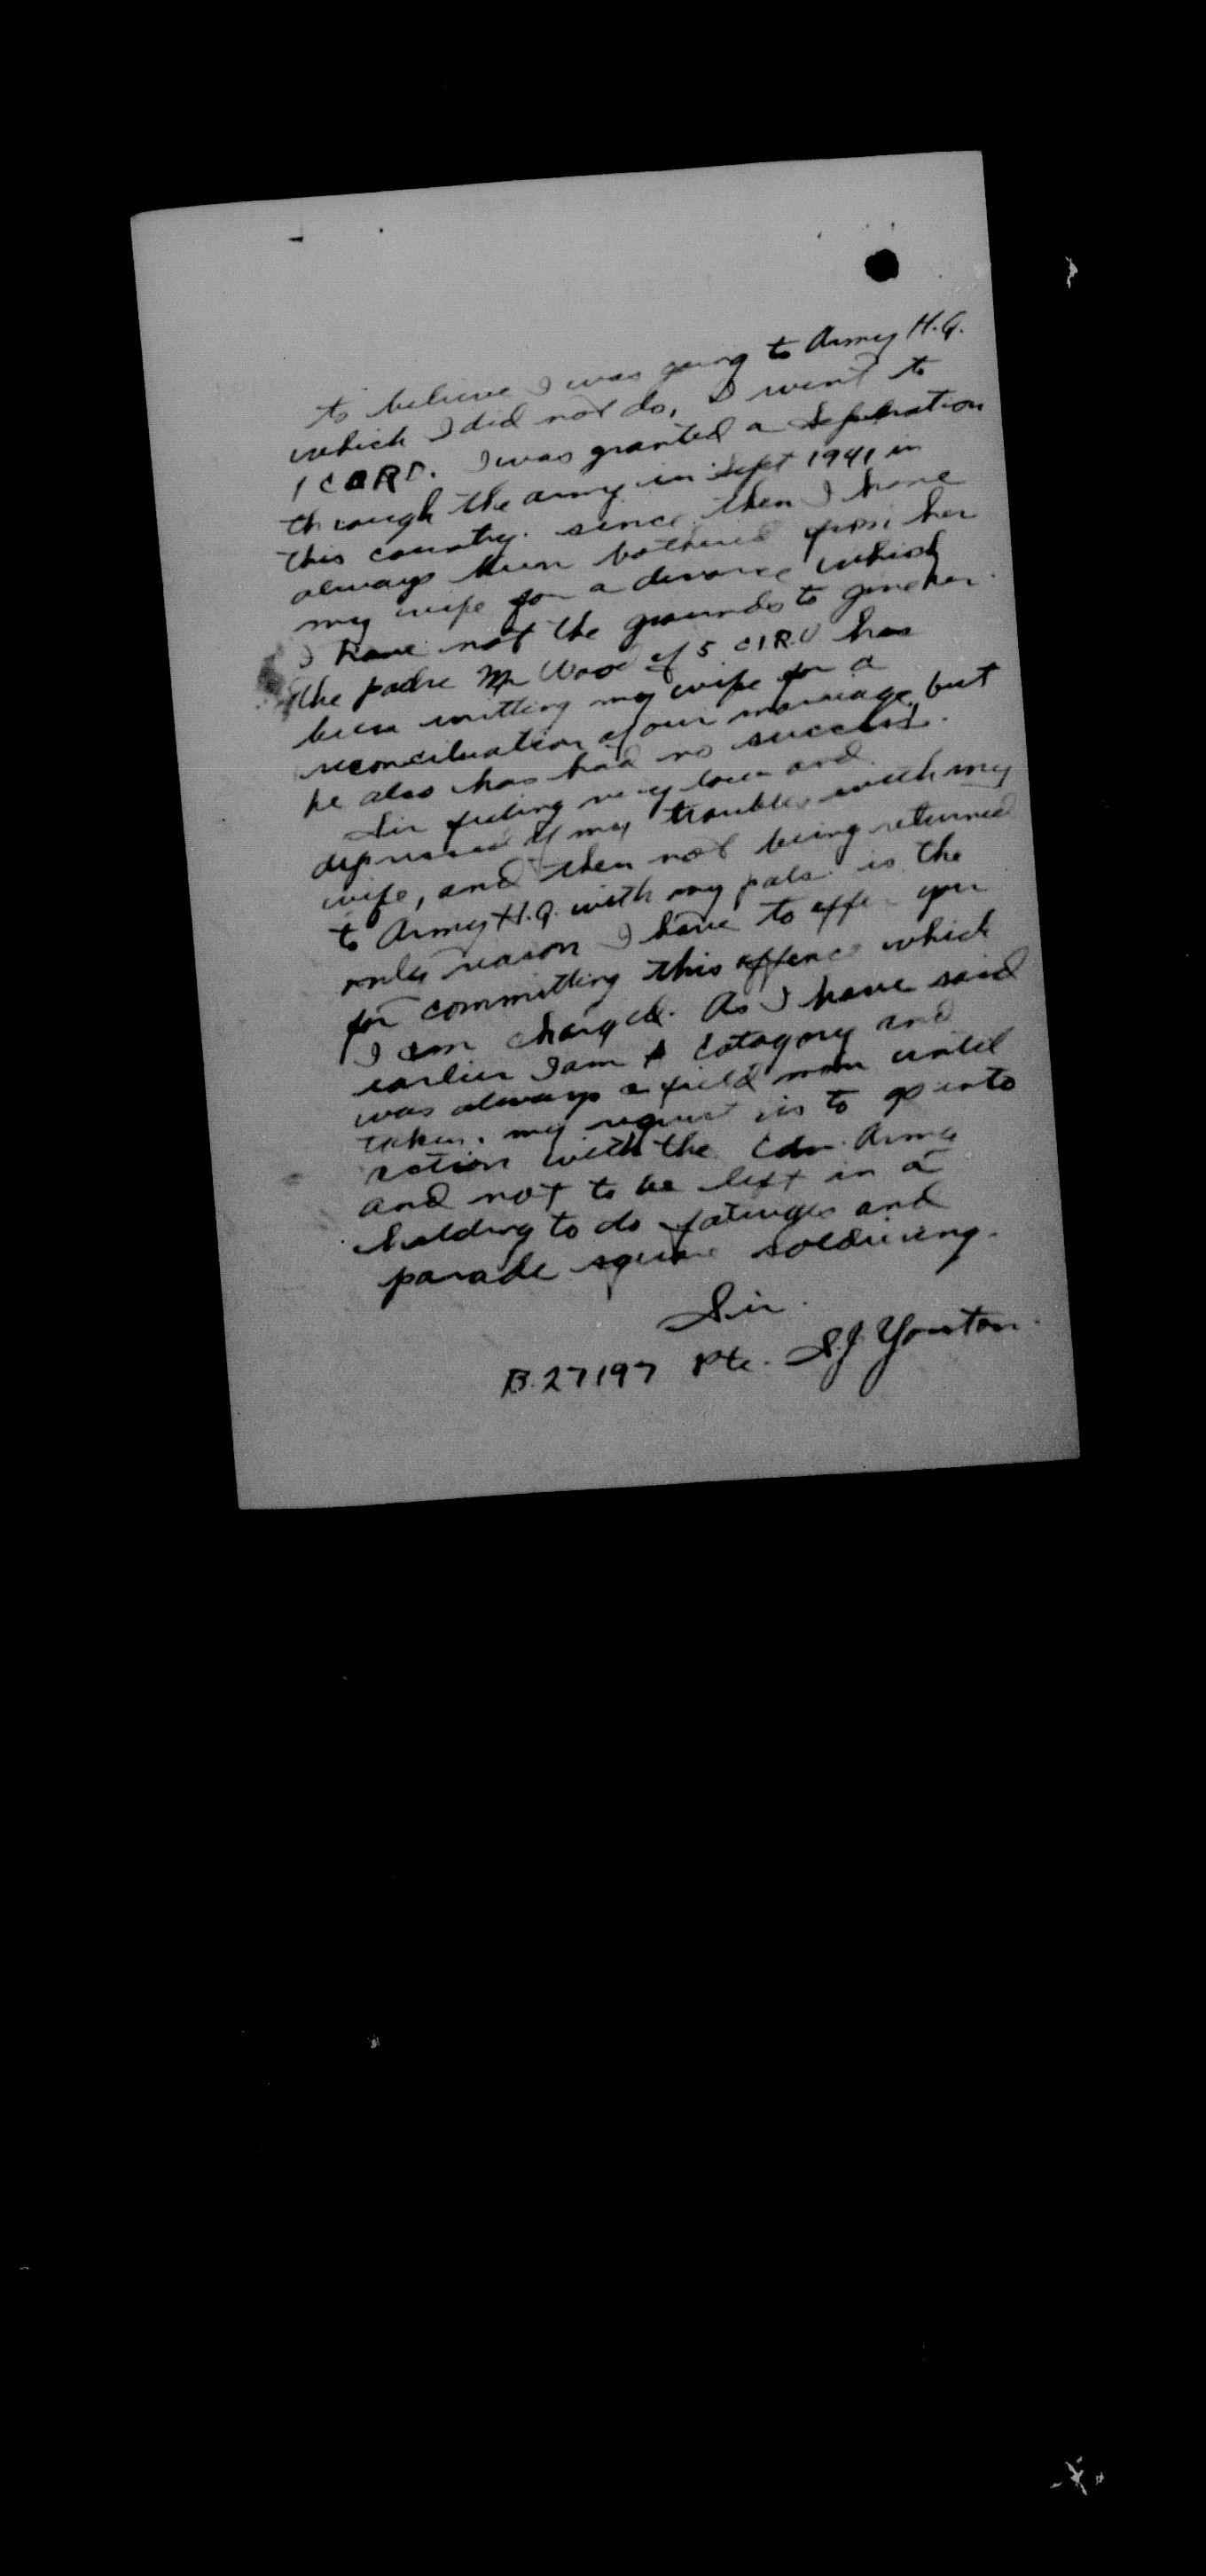 to believe I was going to Army H.Q.
which I did not do, I went to
1 CORD. I was granted a Sephration
through the army in Sept 1941 in
this country. since then I have
always been bothered from her
my wife for a divorce which
I have not the grounds to give her.
The padre Mr Wood of 5 CIRU has
been writting my wife for a
reconciluation of our marriage, but
he also has had no success.
Sir feeling very low and
depressed of my troubles with my
wife, and then not being returned
to Army H.Q. with my pals is the
only reason I have to offer you
for committing this offence which
I am charged. As I have said
earlier I am A Catagory and
was always a field man until
taken. my request is to go into
action with the Cdn. Army
and not to be left in a
holding to do fatuiges and
parade square soldiering.
Sir.
B.27197 Pte. S.J. Younton.